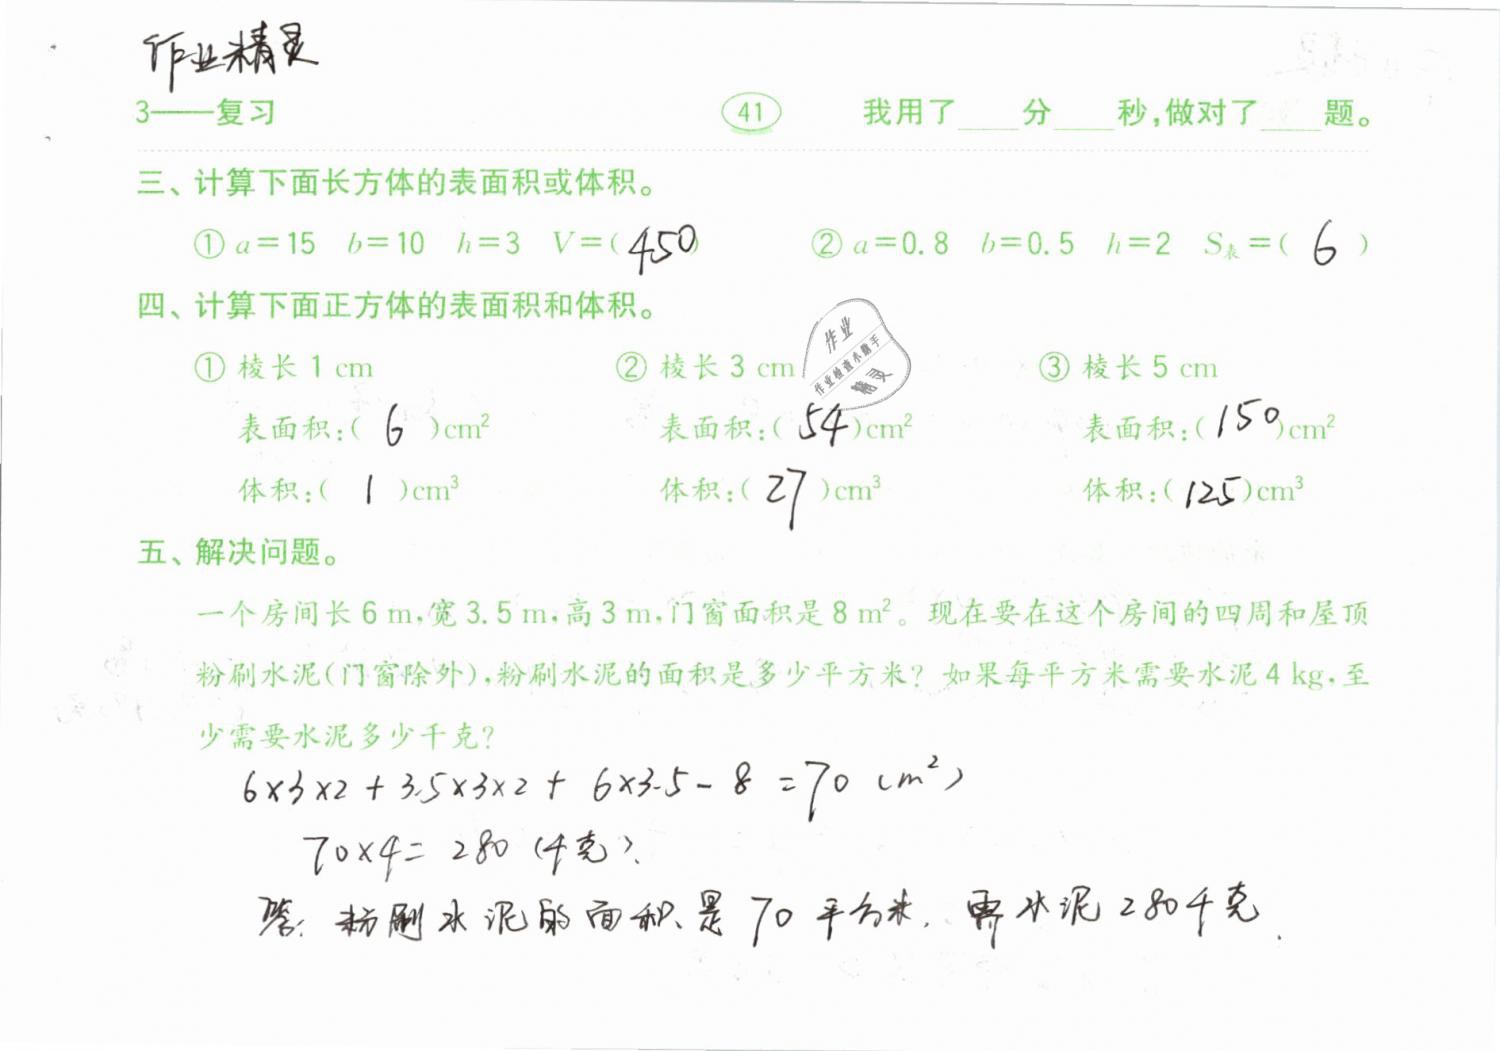 作业精灵
3——复习 41 我用了____分____秒,做对了____题。
三、计算下面长方体的表面积或体积。
① a=15 b=10 h=3 V=(450) ② a=0.8 b=0.5 h=2 S表=( 6 )
四、计算下面正方体的表面积和体积。
作业
作业检查小助手
精灵
① 棱长 1 cm ② 棱长 3 cm ③ 棱长 5 cm
表面积:( 6 )cm² 表面积:( 54 )cm² 表面积:(150)cm²
体积:( 1 )cm³ 体积:( 27 )cm³ 体积:(125)cm³
五、解决问题。
一个房间长 6 m,宽 3.5 m,高 3 m,门窗面积是 8 m²。现在要在这个房间的四周和屋顶
粉刷水泥(门窗除外),粉刷水泥的面积是多少平方米?如果每平方米需要水泥 4 kg,至
少需要水泥多少千克?
6×3×2+3.5×3×2+6×3.5-8=70(m²)
70×4=280(千克).
答:粉刷水泥的面积是70平方米,需水泥280千克.